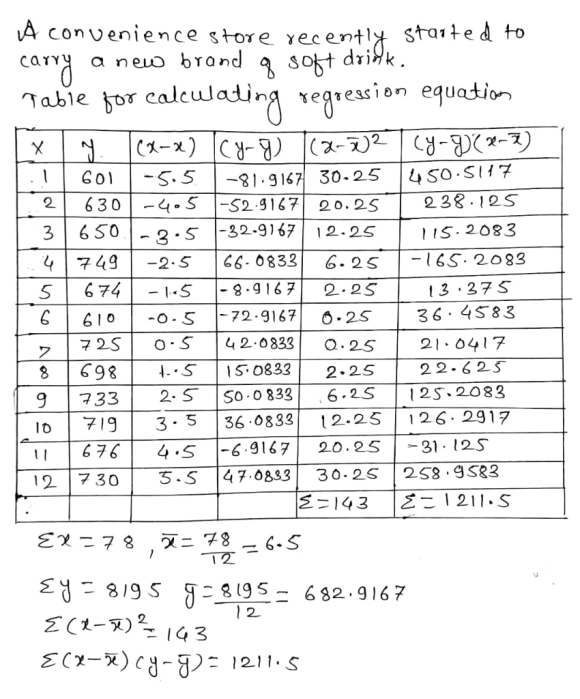 A convenience store recently started to
carry a new brand of soft drink.
Table for calculating regression equation
x y (x-x) (y-ȳ) (x-x̄)² (y-ȳ)(x-x̄)
1 601 -5.5 -81.9167 30.25 450.5417
2 630 -4.5 -52.9167 20.25 238.125
3 650 -3.5 -32.9167 12.25 115.2083
4 749 -2.5 66.0833 6.25 -165.2083
5 674 -1.5 -8.9167 2.25 13.375
6 610 -0.5 -72.9167 0.25 36.4583
7 725 0.5 42.0833 0.25 21.0417
8 698 1.5 15.0833 2.25 22.625
9 733 2.5 50.0833 6.25 125.2083
10 719 3.5 36.0833 12.25 126.2917
11 676 4.5 -6.9167 20.25 -31.125
12 730 5.5 47.0833 30.25 258.9583
Σ=143 Σ=1211.5
Σx = 78, x̄ = 78/12 = 6.5
Σy = 8195 ȳ = 8195/12 = 682.9167
Σ(x-x̄)² = 143
Σ(x-x̄)(y-ȳ) = 1211.5